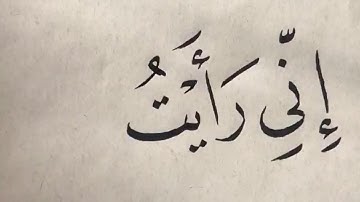 إِنِّي رَأَيْتُ